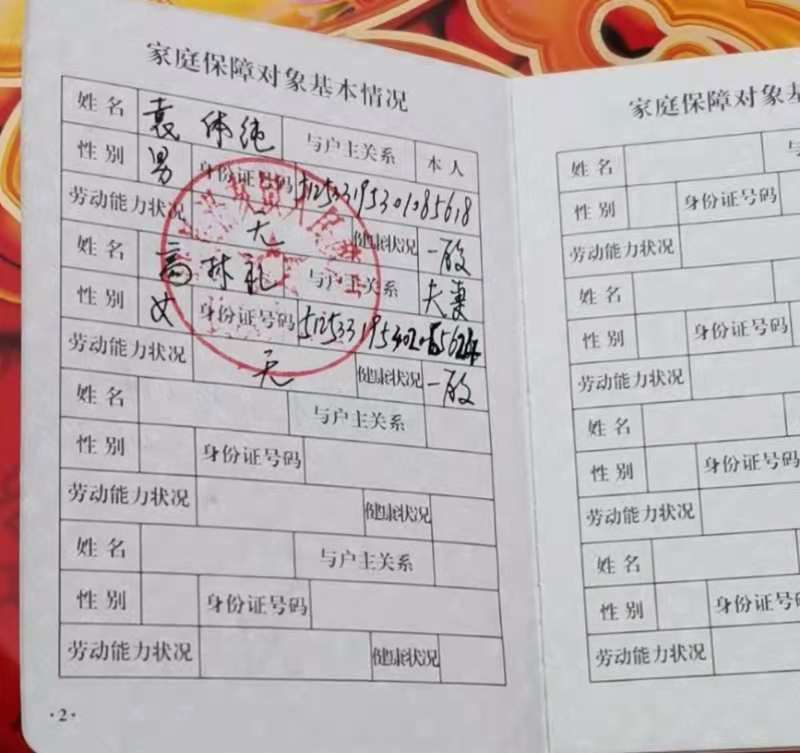 家庭保障对象基本情况
姓名 袁体纯 与户主关系 本人
性别 男 身份证号码 512533195301085618
劳动能力状况 无 健康状况 一般
姓名 高林礼 与户主关系 夫妻
性别 女 身份证号码
劳动能力状况 无 健康状况 一般
姓名 与户主关系
性别 身份证号码
劳动能力状况 健康状况
姓名 与户主关系
性别 身份证号码
劳动能力状况 健康状况
·2·
家庭保障对象基
姓名 与
性别 身份证号码
劳动能力状况
姓名
性别 身份证号码
劳动能力状况
姓名
性别 身份证号码
劳动能力状况
姓名
性别 身份证号码
劳动能力状况